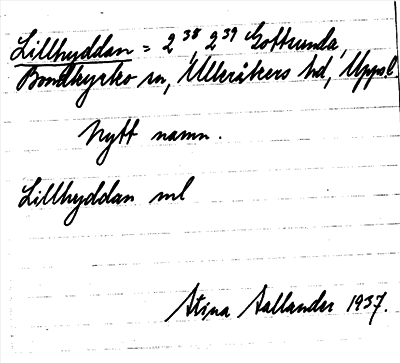 Lillhyddan = 2³⁸, 2³⁹ Gottsunda,
Bondkyrko sn, Ulleråkers hd, Uppsl
Nytt namn.
Lillhyddan ml
Stina Aallander 1937.